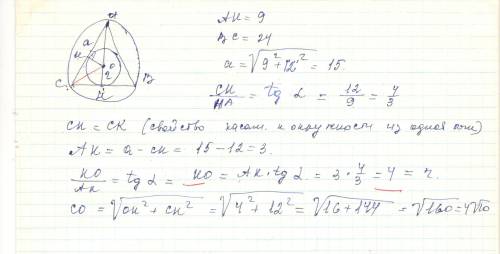 A
a
K
O
r
C
H
B
AH = 9
BC = 24
a = √9² + 12² = 15.
CH/HA = tg α = 12/9 = 4/3
CH = CK (свойство касат. к окружности из одной точки)
AK = a - CH = 15 - 12 = 3.
KO/AK = tg α = KO = AK · tg α = 3 · 4/3 = 4 = r.
CO = √OH² + CH² = √4² + 12² = √16 + 144 = √160 = 4√10